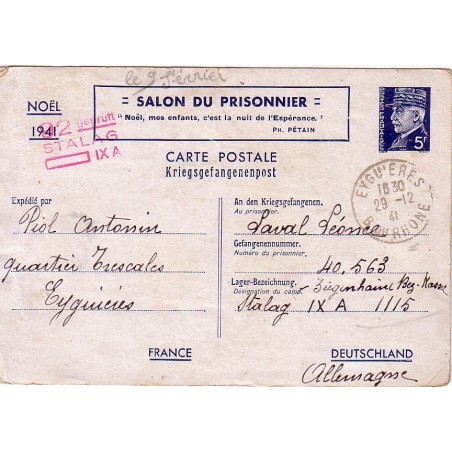 le 9 février
NOËL
1941
= SALON DU PRISONNIER =
"Noël, mes enfants, c'est la nuit de l'Espérance."
PH. PÉTAIN
5F
22 geprüft
STALAG
IX A
CARTE POSTALE
Kriegsgefangenenpost
EYGUIÈRES
18 30
29 -12
41
Bᴱˢ DU RHONE
Expédié par
Piol Antonin
quartier Trescales
Eyguières
FRANCE
An den Kriegsgefangenen.
Au prisonnier.
Laval Léonce
Gefangenennummer.
Numéro du prisonnier.
40.563
Lager-Bezeichnung.
Désignation du camp.
Ziegenhain Bez-Kassel
Stalag IX A 1115
DEUTSCHLAND
Allemagne